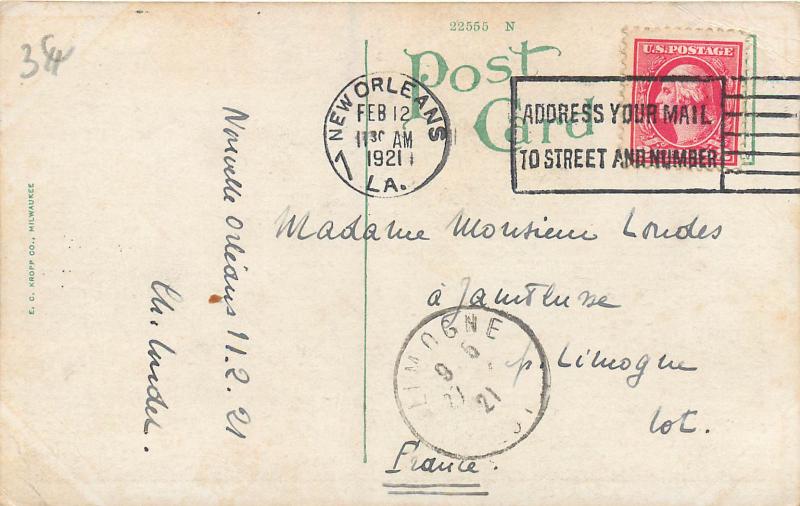 22555 N
Post
Card
U.S. POSTAGE
NEW ORLEANS
FEB 12
11 30 AM
1921
LA.
ADDRESS YOUR MAIL
TO STREET AND NUMBER
E. C. KROPP CO., MILWAUKEE
Nouvelle Orléans 11.2.21
Ch.
Madame Monsieur Londes
à
p. Limogne
Lot.
France.
LIMOGNE
21